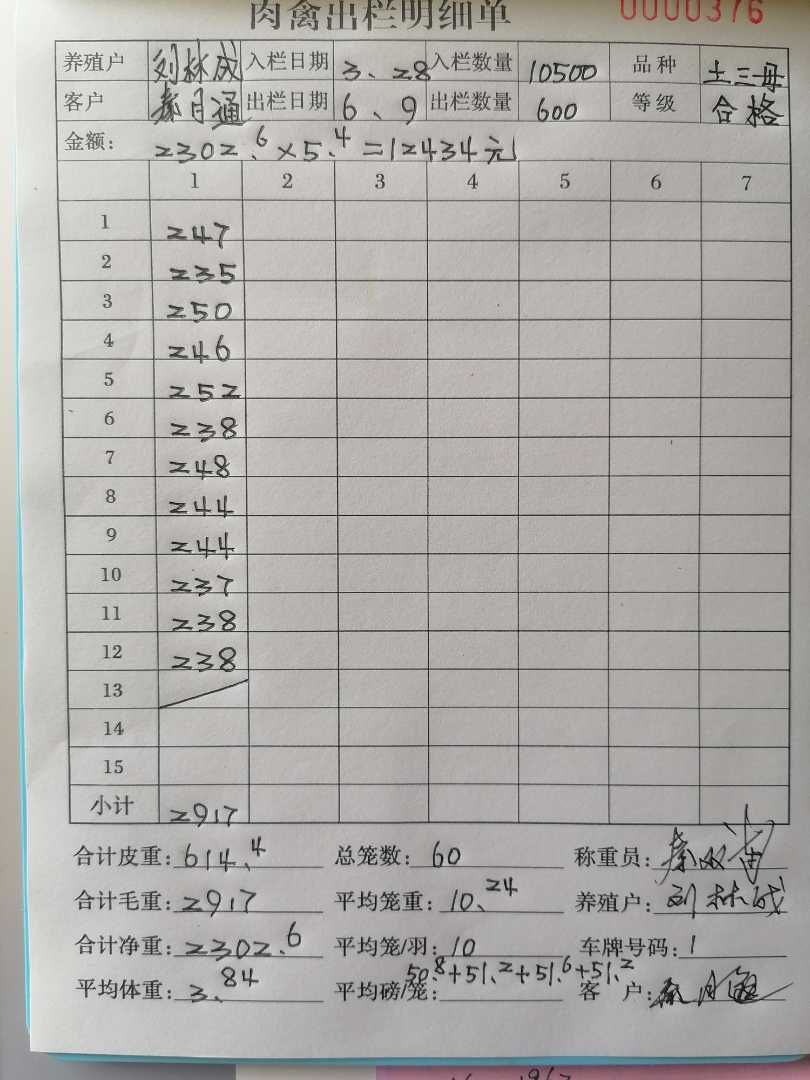 肉禽出栏明细单 0000376
养殖户 刘林成 入栏日期 3、28 入栏数量 10500 品种 土三毋
客户 秦月通 出栏日期 6、9 出栏数量 600 等级 合格
金额: 2302.6×5.4=12434元
1 2 3 4 5 6 7
1 247
2 235
3 250
4 246
5 252
6 238
7 248
8 244
9 244
10 237
11 238
12 238
13
14
15
小计 2917
合计皮重: 614.4 总笼数: 60 称重员:
合计毛重: 2917 平均笼重: 10.24 养殖户: 刘林成
合计净重: 2302.6 平均笼/羽: 10 车牌号码: 1
平均体重: 3.84 平均磅/笼: 50.8+51.2+51.6+51.2 客户: 秦月通